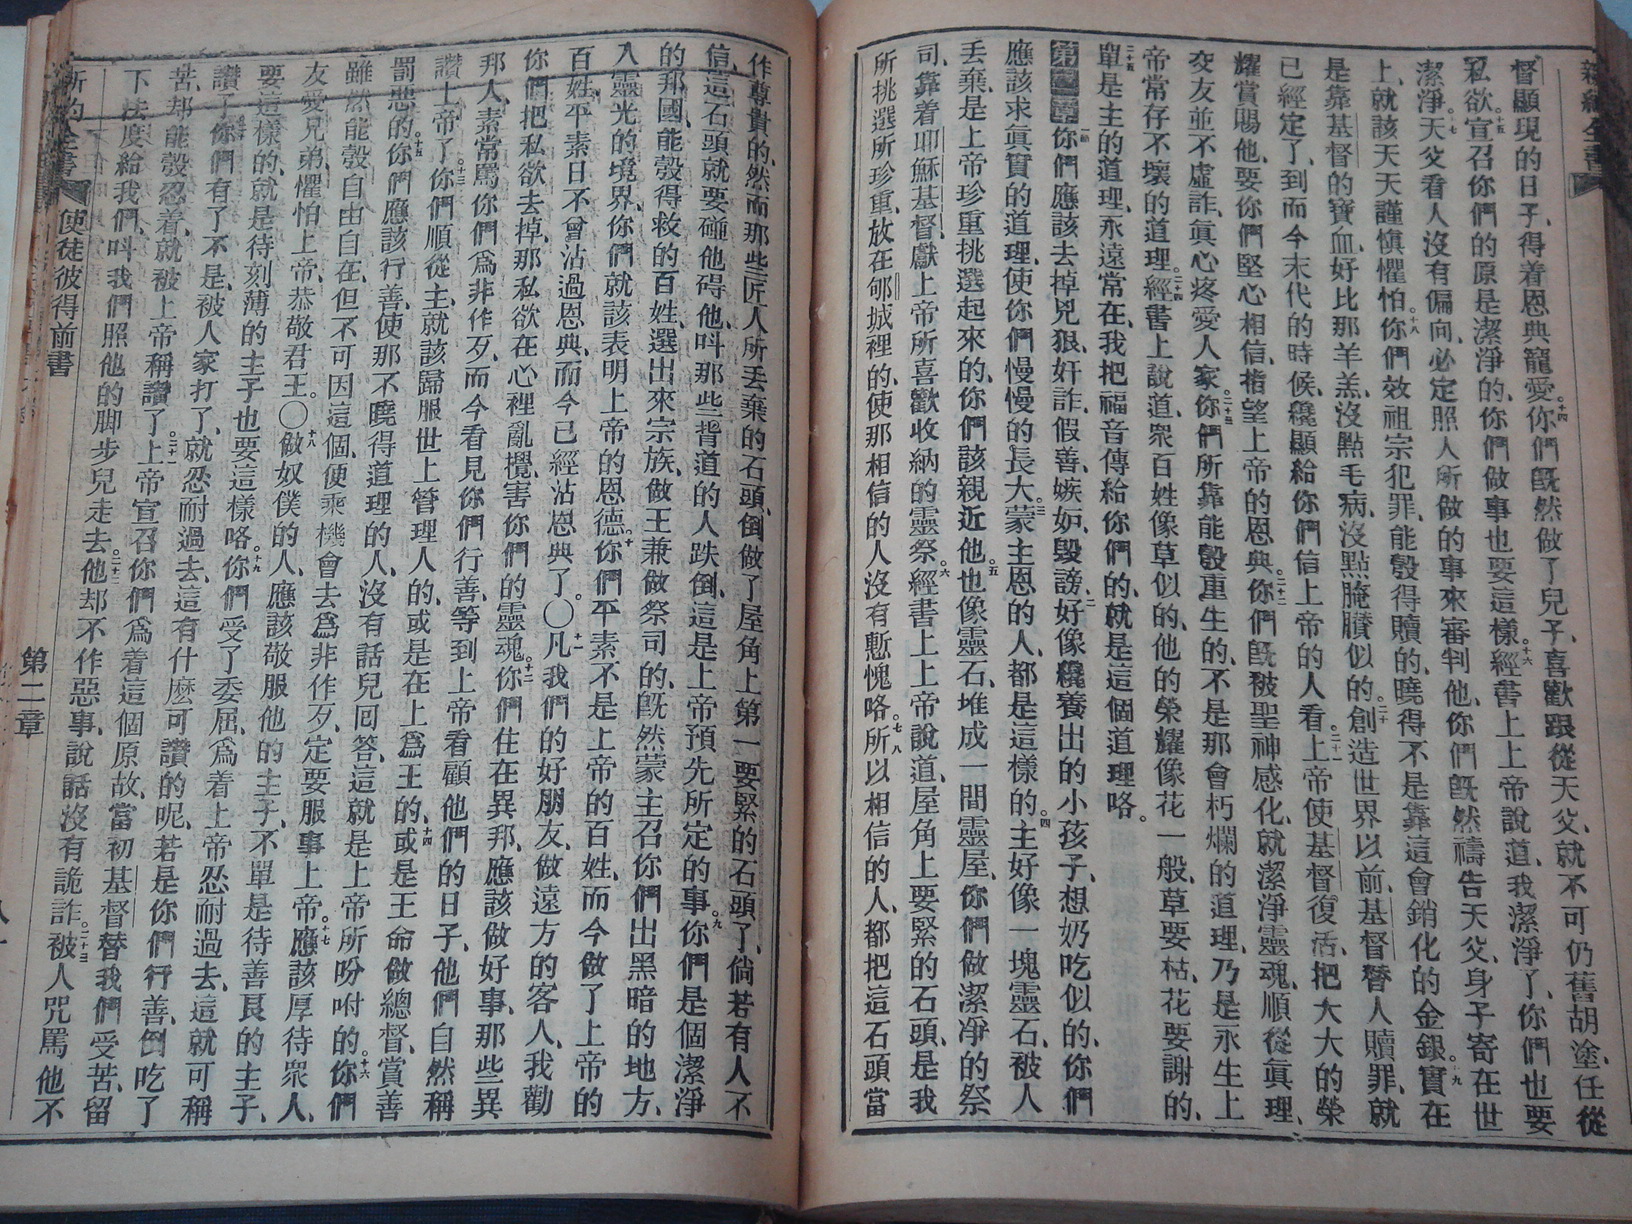 新約全書
督顯現的日子、得着恩典寵愛。十四你們旣然做了兒子、喜歡跟從天父、就不可仍舊胡塗、任從
私欲。十五宣召你們的原是潔淨的、你們做事也要這樣。十六經書上上帝說道、我潔淨了、你們也要
潔淨。十七天父看人沒有偏向、必定照人所做的事來審判他、你們旣然禱告天父、身子寄在世
上、就該天天謹愼懼怕。十八你們效祖宗犯罪、能彀得贖的、曉得不是靠這會銷化的金銀。十九實在
是靠基督的寶血、好比那羊羔、沒點毛病、沒點腌臢似的。二十創造世界以前、基督替人贖罪、就
已經定了、到而今末代的時候、纔顯給你們信上帝的人看。二十一上帝使基督復活、把大大的榮
耀賞賜他、要你們堅心相信、指望上帝的恩典。二十二你們旣被聖神感化、就潔淨靈魂、順從眞理、
交友並不虛詐、眞心疼愛人家。二十三你們所靠能彀重生的、不是那會朽爛的道理、乃是永生上
帝常存不壞的道理。二十四經書上說道、衆百姓像草似的、他的榮耀像花一般、草要枯、花要謝的、
二十五單是主的道理、永遠常在、我把福音傳給你們的、就是這個道理咯。
第二章 一節你們應該去掉兇狠、奸詐、假善、嫉妬、毀謗、二好像纔養出的小孩子、想奶吃似的、你們
應該求眞實的道理、使你們慢慢的長大。三蒙主恩的人、都是這樣的。四主好像一塊靈石、被人
丟棄、是上帝珍重挑選起來的、你們該親近他。五也像靈石、堆成一間靈屋、你們做潔凈的祭
司、靠着耶穌基督、獻上帝所喜歡收納的靈祭。六經書上上帝說道、屋角上要緊的石頭、是我
所挑選所珍重、放在郇城裡的、使那相信的人沒有慙愧咯。七八所以相信的人、都把這石頭當
作尊貴的、然而那些匠人所丟棄的石頭、倒做了屋角上第一要緊的石頭了、倘若有人不
信、這石頭就要碰他碍他、叫那些背道的人跌倒、這是上帝預先所定的事。九你們是個潔淨
的邦國、能彀得救的百姓、選出來宗族、做王兼做祭司的、旣然蒙主召你們出黑暗的地方、
入靈光的境界、你們就該表明上帝的恩德。十你們平素不是上帝的百姓、而今做了上帝的
百姓、平素日不曾沾過恩典、而今已經沾恩典了。〇十一凡我們的好朋友、做遠方的客人、我勸
你們把私欲去掉、那私欲在心裡亂攪、害你們的靈魂。十二你們住在異邦、應該做好事、那些異
邦人、素常罵你們爲非作歹、而今看見你們行善、等到上帝看顧他們的日子、他們自然稱
讚上帝了。十三你們順從主、就該歸服世上管理人的、或是在上爲王的、十四或是王命做總督、賞善
罰惡的。十五你們應該行善、使那不曉得道理的人、沒有話兒回答、這就是上帝所吩咐的。十六你們
雖然能彀自由自在、但不可因這個、便乘機會去爲非作歹、定要服事上帝。十七應該厚待衆人、
友愛兄弟、懼怕上帝、恭敬君王。〇十八做奴僕的人、應該敬服他的主子、不單是待善良的主子、
要這樣的、就是待刻薄的主子也要這樣咯。十九你們受了委屈、爲着上帝忍耐過去、這就可稱
讚了。二十你們有了不是、被人家打了、就忍耐過去、這有什麽可讚的呢、若是你們行善、倒吃了
苦、却能彀忍着、就被上帝稱讚了。二十一上帝宣召你們爲着這個原故、當初基督替我們受苦、留
下法度給我們、叫我們照他的脚步兒走去。二十二他却不作惡事、說話沒有詭詐。二十三被人咒罵、他不
新約全書 使徒彼得前書 第二章